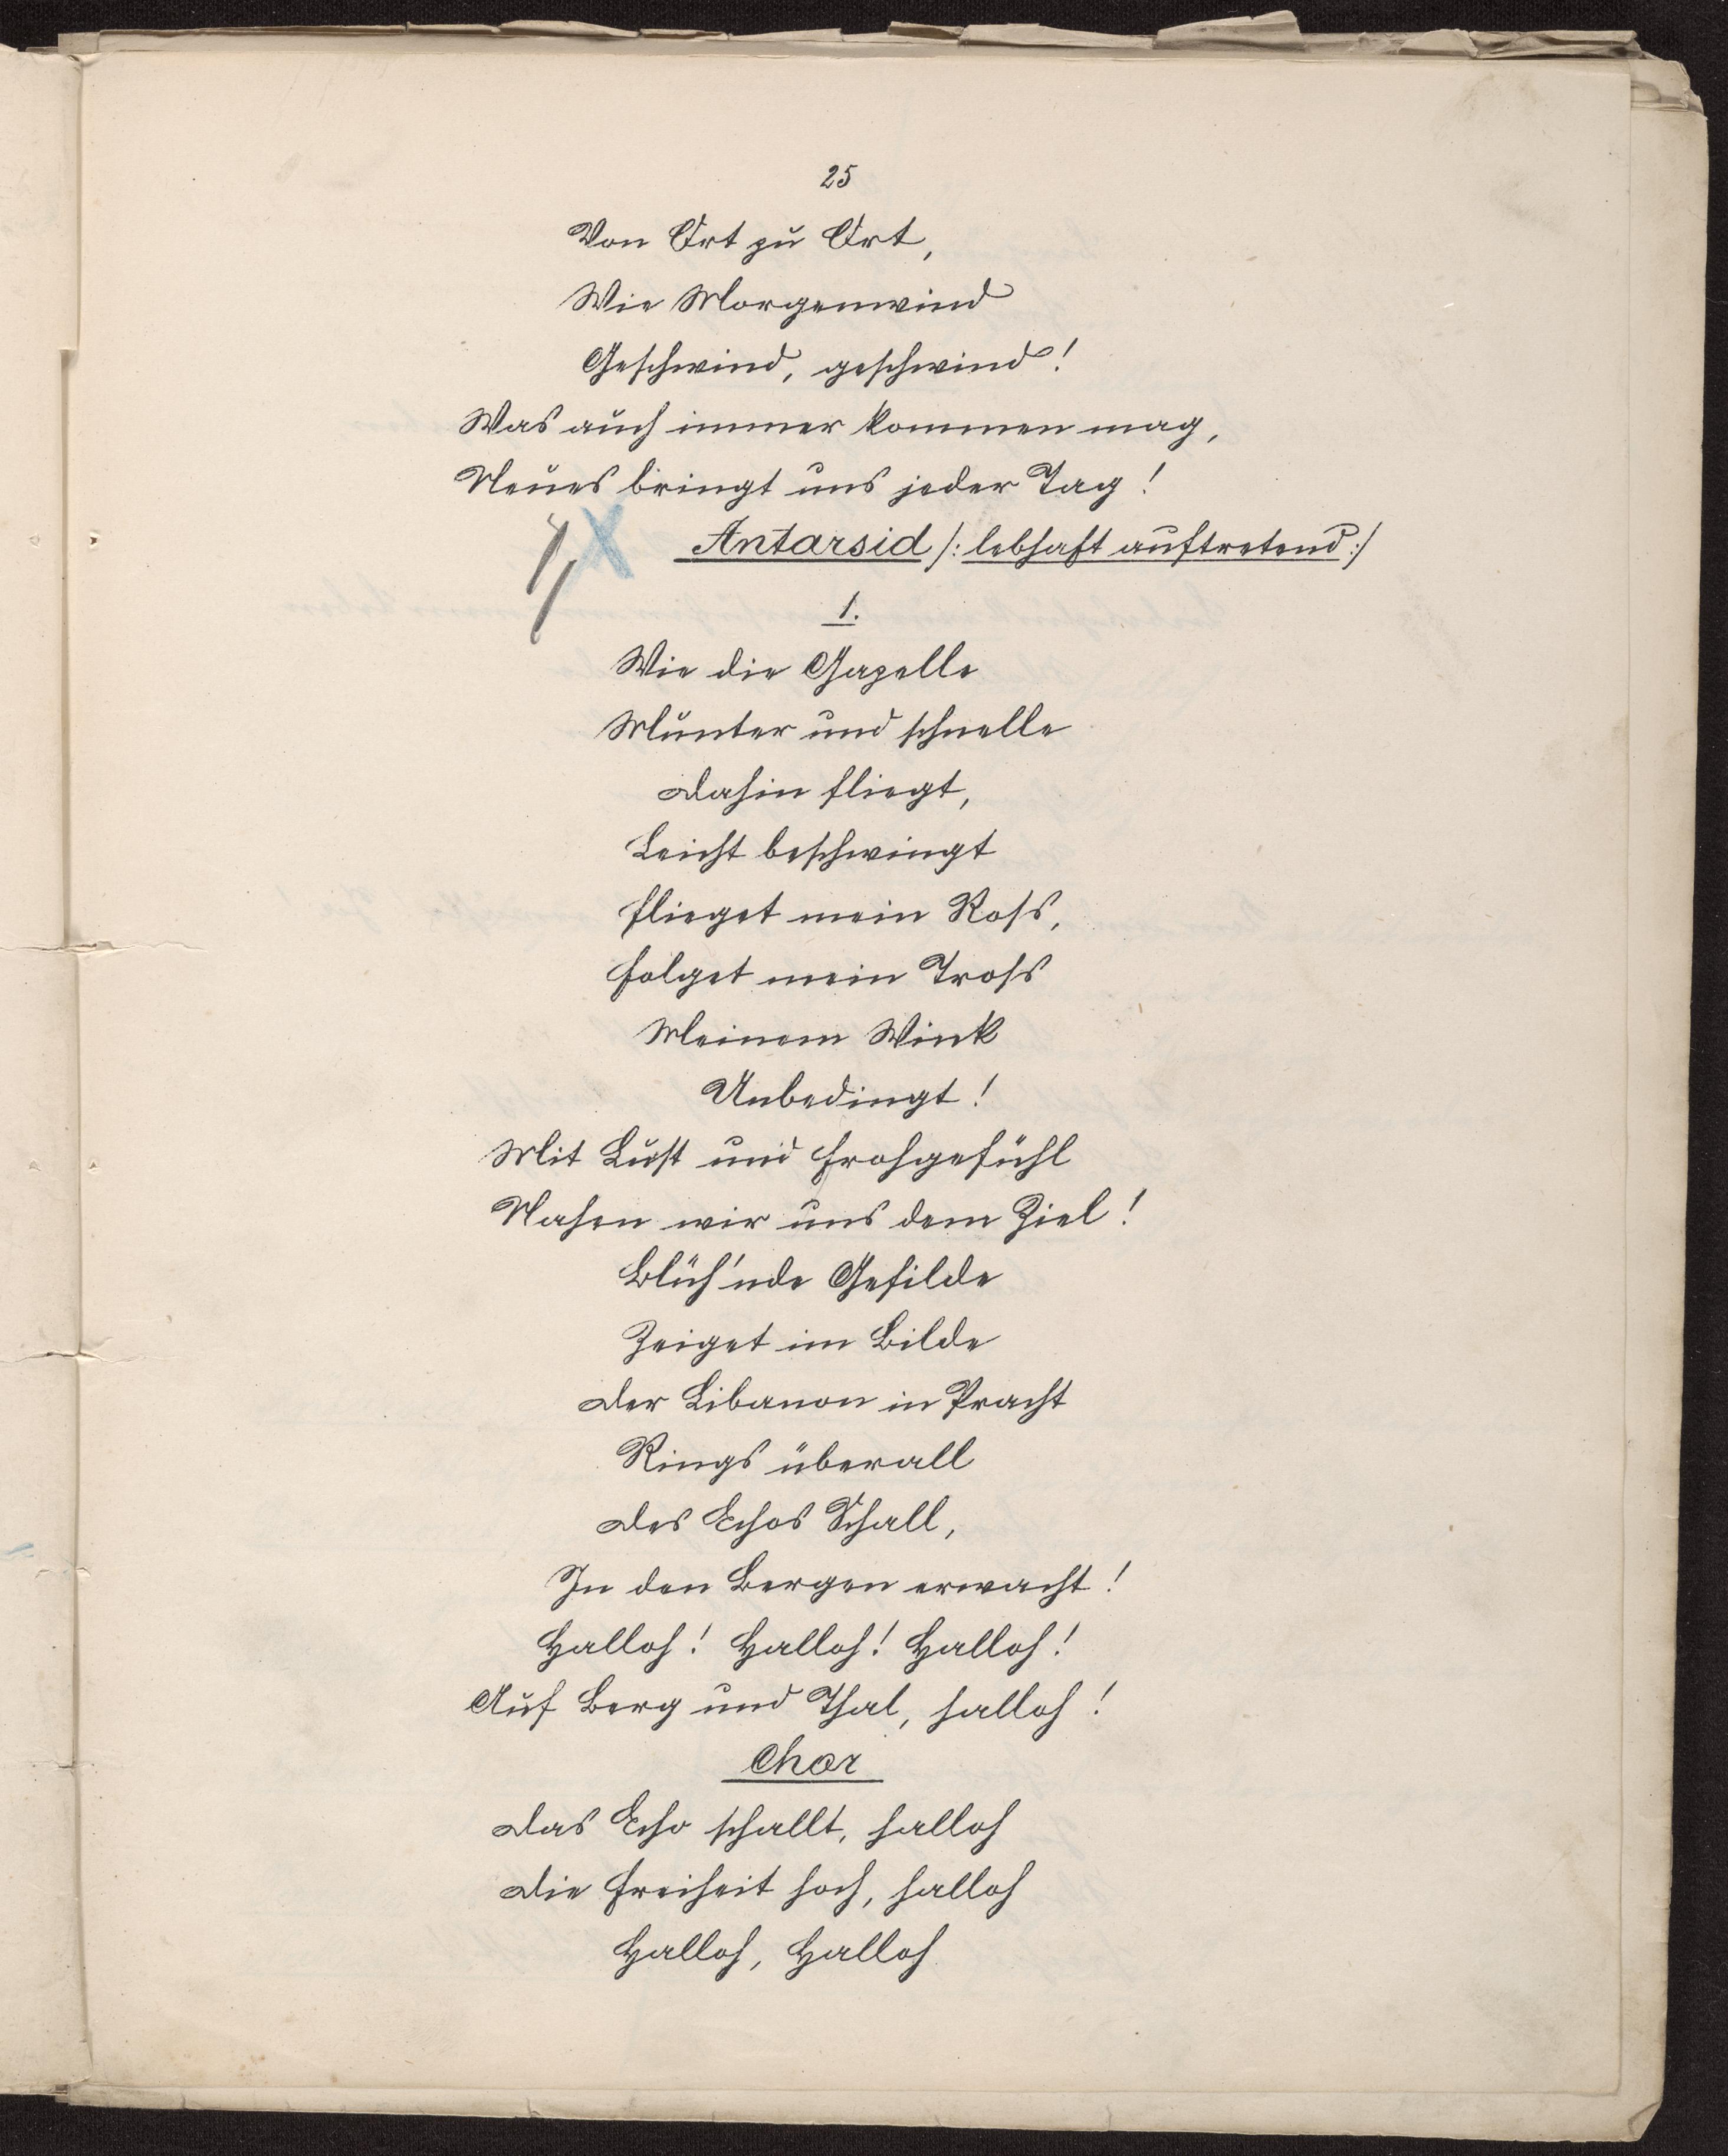 25
Von Ort zu Ort,
Wie Morgenwind
Geschwind, geschwind!
Was auch immer kommen mag,
Neues bringt uns jeder Tag!
Antarsid /: lebhaft auftretend :/
1.
Wie die Gazelle
Munter und schnelle
Dahin fliegt,
Leicht beschwingt
Flieget mein Ross,
Folget mein Tross
Meinem Wink
Unbedingt!
Mit Lust und Frohgefühl
Nahen wir uns dem Ziel!
Blüh'nde Gefilde
Zeiget im Bilde
Der Libanon in Pracht
Rings überall
Des Echos Schall,
In den Bergen erwacht!
Halloh! Halloh! Halloh!
Auf Berg und Thal, halloh!
Chor
Das Echo schallt, halloh
Die Freiheit hoch, halloh
Halloh, Halloh